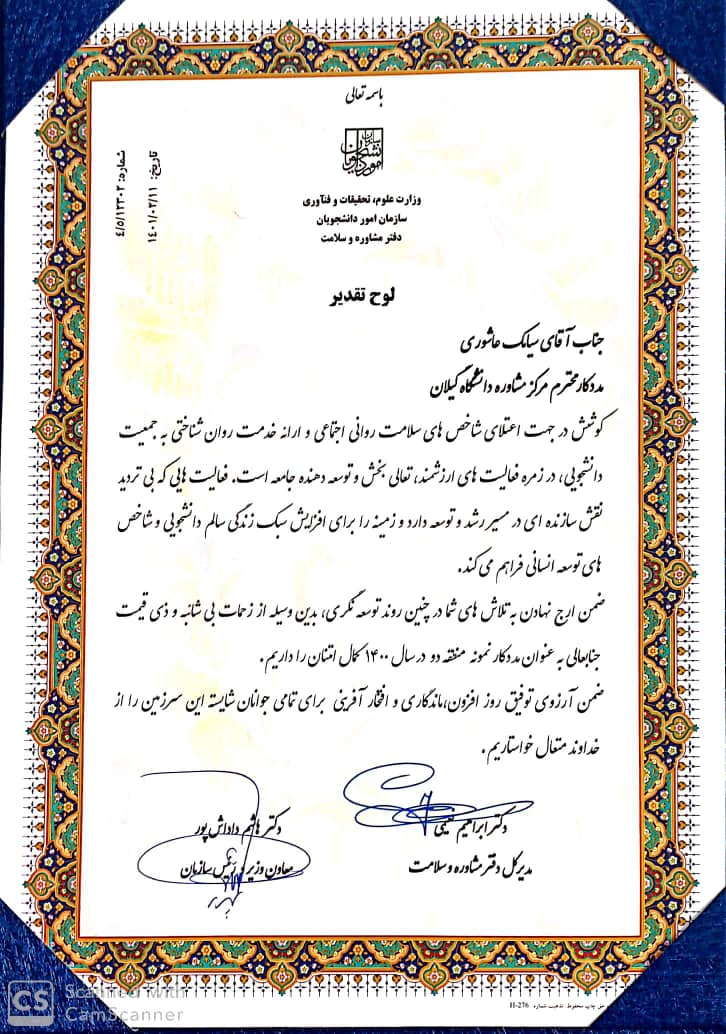 باسمه تعالی
سازمان امور دانشجویان
شماره: ۴/۵/۱۲۳۰۲
تاریخ: ۱۴۰۱/۰۲/۱۱
وزارت علوم، تحقیقات و فنآوری
سازمان امور دانشجویان
دفتر مشاوره و سلامت
لوح تقدیر
جناب آقای سیامک عاشوری
مددکار محترم مرکز مشاوره دانشگاه گیلان
کوشش در جهت اعتلای شاخص های سلامت روانی اجتماعی و ارائه خدمت روان شناختی به جمعیت
دانشجویی، در زمره فعالیت های ارزشمند، تعالی بخش و توسعه دهنده جامعه است. فعالیت هایی که بی تردید
نقش سازنده ای در مسیر رشد و توسعه دارد و زمینه را برای افزایش سبک زندگی سالم دانشجویی و شاخص
های توسعه انسانی فراهم می کند.
ضمن ارج نهادن به تلاش های شما در چنین روند توسعه نگری، بدین وسیله از زحمات بی شائبه و ذی قیمت
جنابعالی به عنوان مددکار نمونه منطقه دو در سال ۱۴۰۰ کمال امتنان را داریم.
ضمن آرزوی توفیق روز افزون، ماندگاری و افتخار آفرینی برای تمامی جوانان شایسته این سرزمین را از
خداوند متعال خواستاریم.
دکتر ابراهیم نعیمی
مدیرکل دفتر مشاوره و سلامت
دکتر هاشم داداش پور
معاون وزیر و رئیس سازمان
حق چاپ محفوظ تذهیب شماره H-276
CS Scanned with
CamScanner